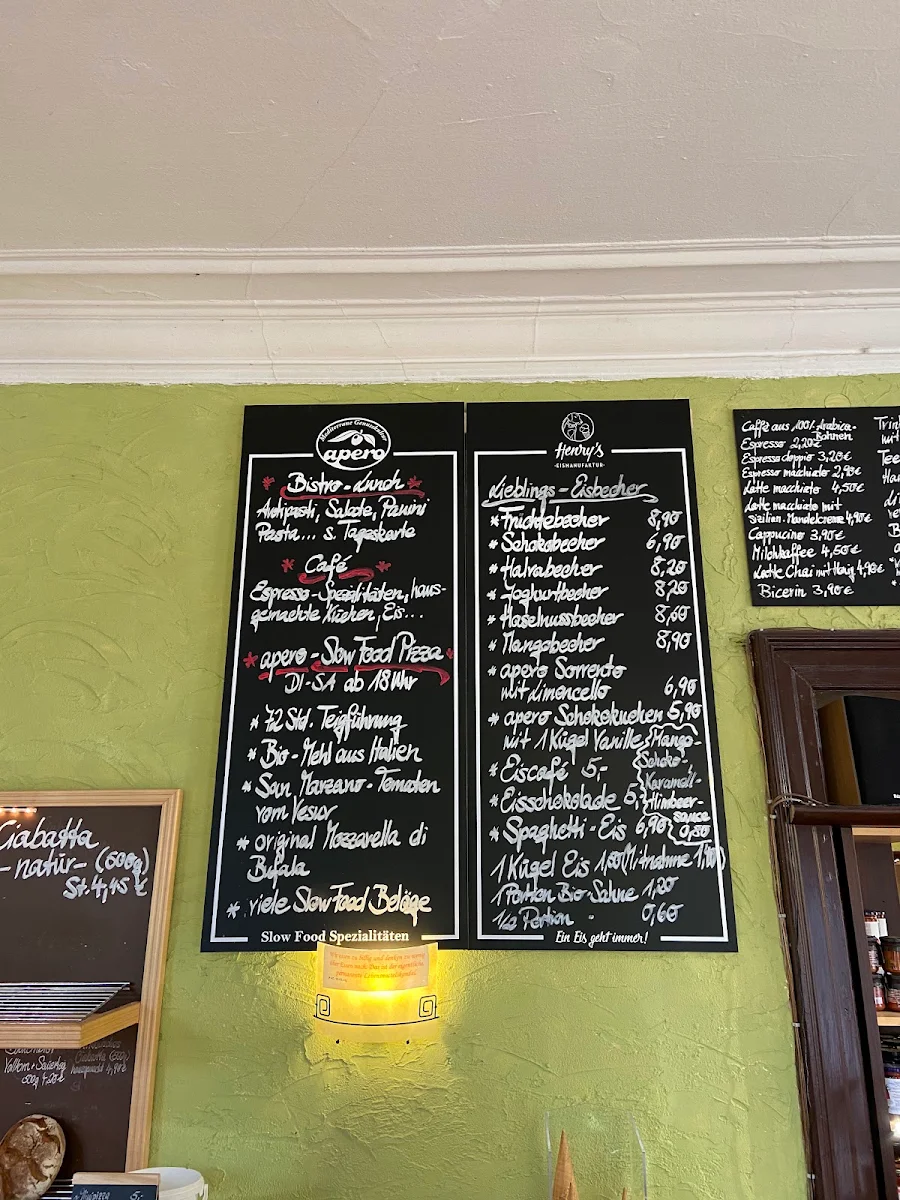 Mediterrane Genusskultur
apero
* Bistro-Lunch *
Antipasti, Salate, Panini
Pasta... s. Tageskarte
* Café *
Espresso-Spezialitäten, haus-
gemachte Kuchen, Eis...
* apero-Slow Food Pizza *
DI-SA ab 18 Uhr
* 72 Std. Teigführung
* Bio-Mehl aus Italien
* San Marzano-Tomaten
vom Vesuv
* original Mozzarella di
Bufala
* viele Slow Food Beläge
Slow Food Spezialitäten
Henry's
EISMANUFAKTUR
Lieblings-Eisbecher
* Früchtebecher 8,90
* Schokobecher 6,90
* Halvabecher 8,20
* Joghurtbecher 8,20
* Haselnussbecher 8,60
* Mangobecher 8,90
* apero Sorrento
mit Limoncello 6,90
* apero Schokokuchen 5,90
mit 1 Kugel Vanille
* Eiscafé 5,-
* Eisschokolade 5,-
* Spaghetti-Eis 6,90
Mango-
Schoko-
Karamell-
Himbeer-
sauce
0,50
1 Kugel Eis 1,60 (Mitnahme
1 Portion Bio-Sahne 1,20
1/2 Portion " 0,60
Ein Eis geht immer!
Caffè aus 100% Arabica-
Bohnen
Espresso 2,20€
Espresso doppio 3,20€
Espresso macchiato 2,90€
Latte macchiato 4,50€
Latte macchiato mit
sizilian. Mandelcreme 4,90€
Cappucino 3,90€
Milchkaffee 4,50€
Latte Chai mit Honig 4,90€
Bicerin 3,90€
Trin
mit
Tee
Ciabatta
-natur- (600g)
St. 4,45 €
Ciabatta (500g)
500g 4,20€
5,-